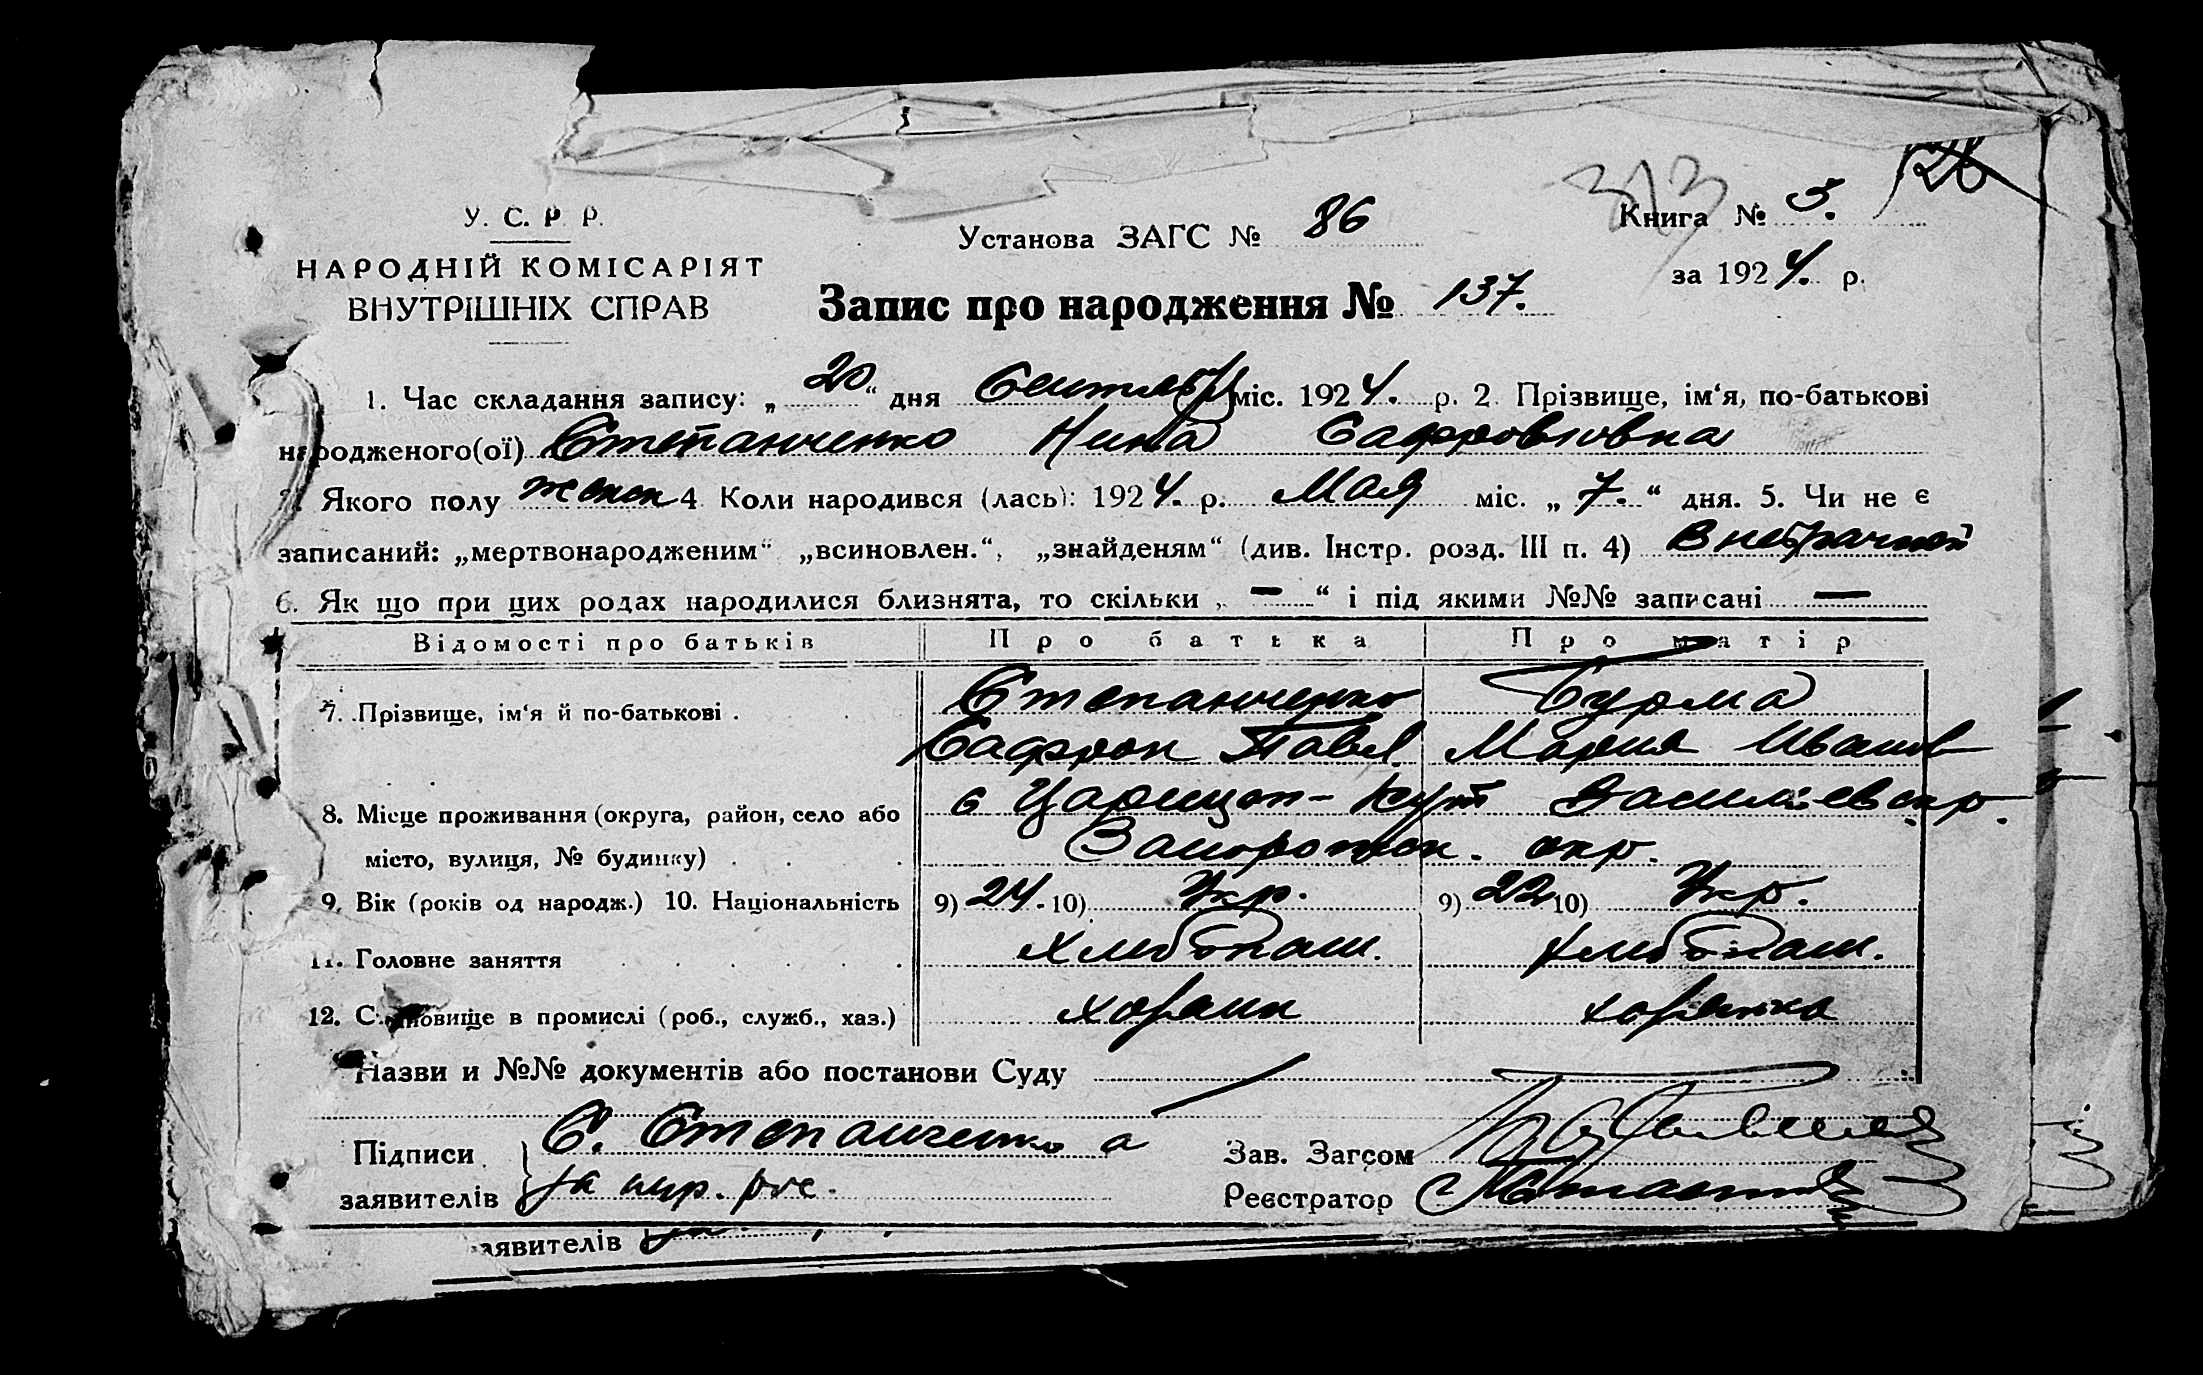 313
У. С. Р. Р.
НАРОДНІЙ КОМІСАРІЯТ
ВНУТРІШНІХ СПРАВ
Установа ЗАГС № 86
Книга № 5.
за 1924. р.
Запис про народження № 137.
1. Час складання запису: „20“ дня Сентября міс. 1924. р. 2. Прізвище, ім‘я, по-батькові
народженого(ої) Степанченко Нина Сафроновна
3. Якого полу женск 4. Коли народився (лась): 1924. р. Мая міс. „7.“ дня. 5. Чи не є
записаний: „мертвонародженим“ „всиновлен.“, „знайденям“ (див. Інстр. розд. III п. 4) Внебрачной
6. Як що при цих родах народилися близнята, то скільки „—“ і під якими №№ записані —
Відомості про батьків Про батька Про матір
7. Прізвище, ім‘я й по-батькові . Степанченко Бурма
Сафрон Павл. Мария Иванов
8. Місце проживання (округа, район, село або с Царицын-Кут Васильевск р.
місто, вулиця, № будинку) Запорожск. окр.
9. Вік (років од народж.) 10. Національність 9) 24. 10) Укр. 9) 22 10) Укр.
11. Головне заняття Хлібопаш. Хлібопаш.
12. Становище в промислі (роб., служб., хаз.) хозяин хозяйка
Назви и №№ документів або постанови Суду
Підписи С. Степанченко а
заявителів за нер. рос.
Зав. Загсом
Реєстратор
заявителів